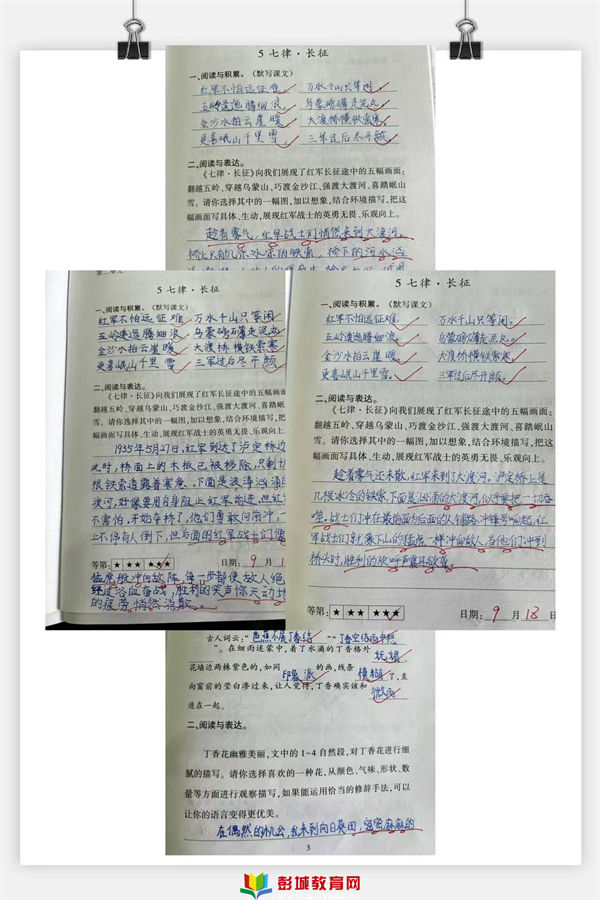 5 七律·长征
一、阅读与积累。（默写课文）
红军不怕远征难 万水千山只等闲
五岭逶迤腾细浪 乌蒙磅礴走泥丸
金沙水拍云崖暖 大渡桥横铁索寒
更喜岷山千里雪 三军过后尽开颜
二、阅读与表达。
《七律·长征》向我们展现了红军长征途中的五幅画面：
翻越五岭、穿越乌蒙山、巧渡金沙江、强渡大渡河、喜踏岷山
雪。请你选择其中的一幅图，加以想象，结合环境描写，把这
幅画面写具体、生动，展现红军战士的英勇无畏、乐观向上。
趁着雾气，红军战士们悄然来到大渡河。
桥上只有几条冰凉的铁索，桥下的河水汹
第二单元
5 七律·长征
一、阅读与积累。（默写课文）
红军不怕远征难，万水千山只等闲
五岭逶迤腾细浪，乌蒙磅礴走泥丸
金沙水拍云崖暖，大渡桥横铁索寒
更喜岷山千里雪 三军过后尽开颜
二、阅读与表达。
《七律·长征》向我们展现了红军长征途中的五幅画面：
翻越五岭、穿越乌蒙山、巧渡金沙江、强渡大渡河、喜踏岷
雪。请你选择其中的一幅图，加以想象，结合环境描写，把
幅画面写具体、生动，展现红军战士的英勇无畏、乐观向上。
1935年5月27日，红军到达了泸定桥边
此时，桥面上的木板已被移除，只剩
根铁索造露着寒意。下面是波涛汹涌
渡河，好像要用自身阻止红军前进，但红
不害怕，开始夺桥了，他们勇敢向前冲，
上不停有人倒下，但后面的红军战士们
等第：★ ★★ ★★★ 日期：9 月
猛虎般冲向敌阵，每一步都使敌人绝
经过浴血奋战，胜利的笑声惊天动地
的疲劳悄然消散。
5 七律·长征
一、阅读与积累。（默写课文）
红军不怕远征难， 万水千山只等闲。
五岭逶迤腾细浪， 乌蒙磅礴走泥丸。
金沙水拍云崖暖， 大渡桥横铁索寒。
更喜岷山千里雪。 三军过后尽开颜。
二、阅读与表达。
《七律·长征》向我们展现了红军长征途中的五幅画面：
翻越五岭、穿越乌蒙山、巧渡金沙江、强渡大渡河、喜踏岷山
雪。请你选择其中的一幅图，加以想象，结合环境描写，把这
幅画面写具体、生动，展现红军战士的英勇无畏、乐观向上。
趁着雾气还未散，红军来到了大渡河。泸定桥上是
几根冰冷的铁索，下面是汹涌的大渡河，似乎要把一切吞
噬。战士们冲在最前面为后面的人铺路，冲锋号响起，红
军战士们就像下山的猛虎一样冲向敌人，当他们冲到
桥头时，胜利的欢呼声震耳欲聋。
等第：★ ★★ ★★★ 日期：9 月 18 日
古人词云：“芭蕉不展丁香结”“丁香空结雨中愁
”。在细雨迷蒙中，着了水滴的丁香格外妩媚
花墙边两棵紫色的，如同印象派的画，线条模糊了，直
向窗前的莹白渗过来，让人觉得，丁香确实该和微雨
连在一起。
二、阅读与表达。
丁香花幽雅美丽，文中的1-4自然段，对丁香花进行细
腻的描写。请你选择喜欢的一种花，从颜色、气味、形状、数
量等方面进行观察描写，如果能运用恰当的修辞手法，可以
让你的语言变得更优美。
在偶然的机会，我来到向日葵田，密密麻麻的
3
彭城教育网